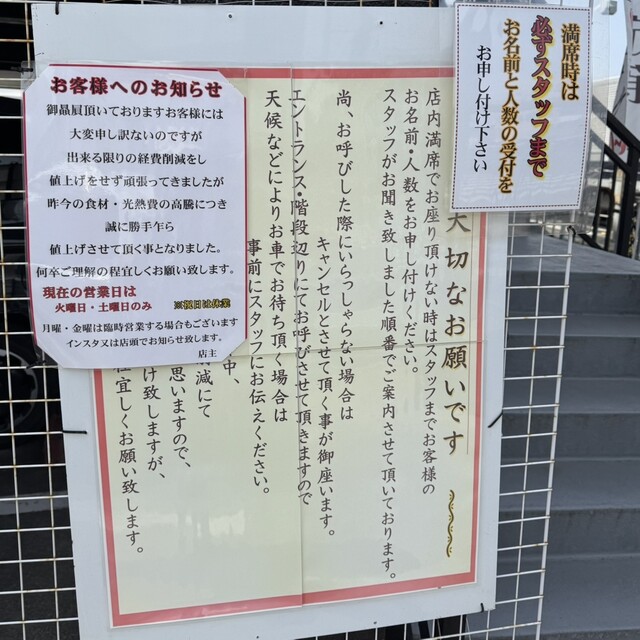 お客様へのお知らせ
御贔屓頂いておりますお客様には
大変申し訳ないのですが
出来る限りの経費削減をし
値上げをせず頑張ってきましたが
昨今の食材・光熱費の高騰につき
誠に勝手乍ら
値上げさせて頂く事となりました。
何卒ご理解の程宜しくお願い致します。
現在の営業日は
火曜日・土曜日のみ ※祝日は休業
月曜・金曜は臨時営業する場合もございます
インスタ又は店頭でお知らせ致します。
店主
満席時は
必ずスタッフまで
お名前と人数の受付を
お申し付け下さい
大切なお願いです
店内満席でお座り頂けない時はスタッフまでお客様の
お名前・人数をお申し付けください。
スタッフがお聞き致しました順番でご案内させて頂いております。
尚、お呼びした際にいらっしゃらない場合は
キャンセルとさせて頂く事が御座います。
エントランス・階段辺りにてお呼びさせて頂きますので
天候などによりお車でお待ち頂く場合は
事前にスタッフにお伝えください。
中、
減にて
思いますので、
け致しますが、
宜しくお願い致します。